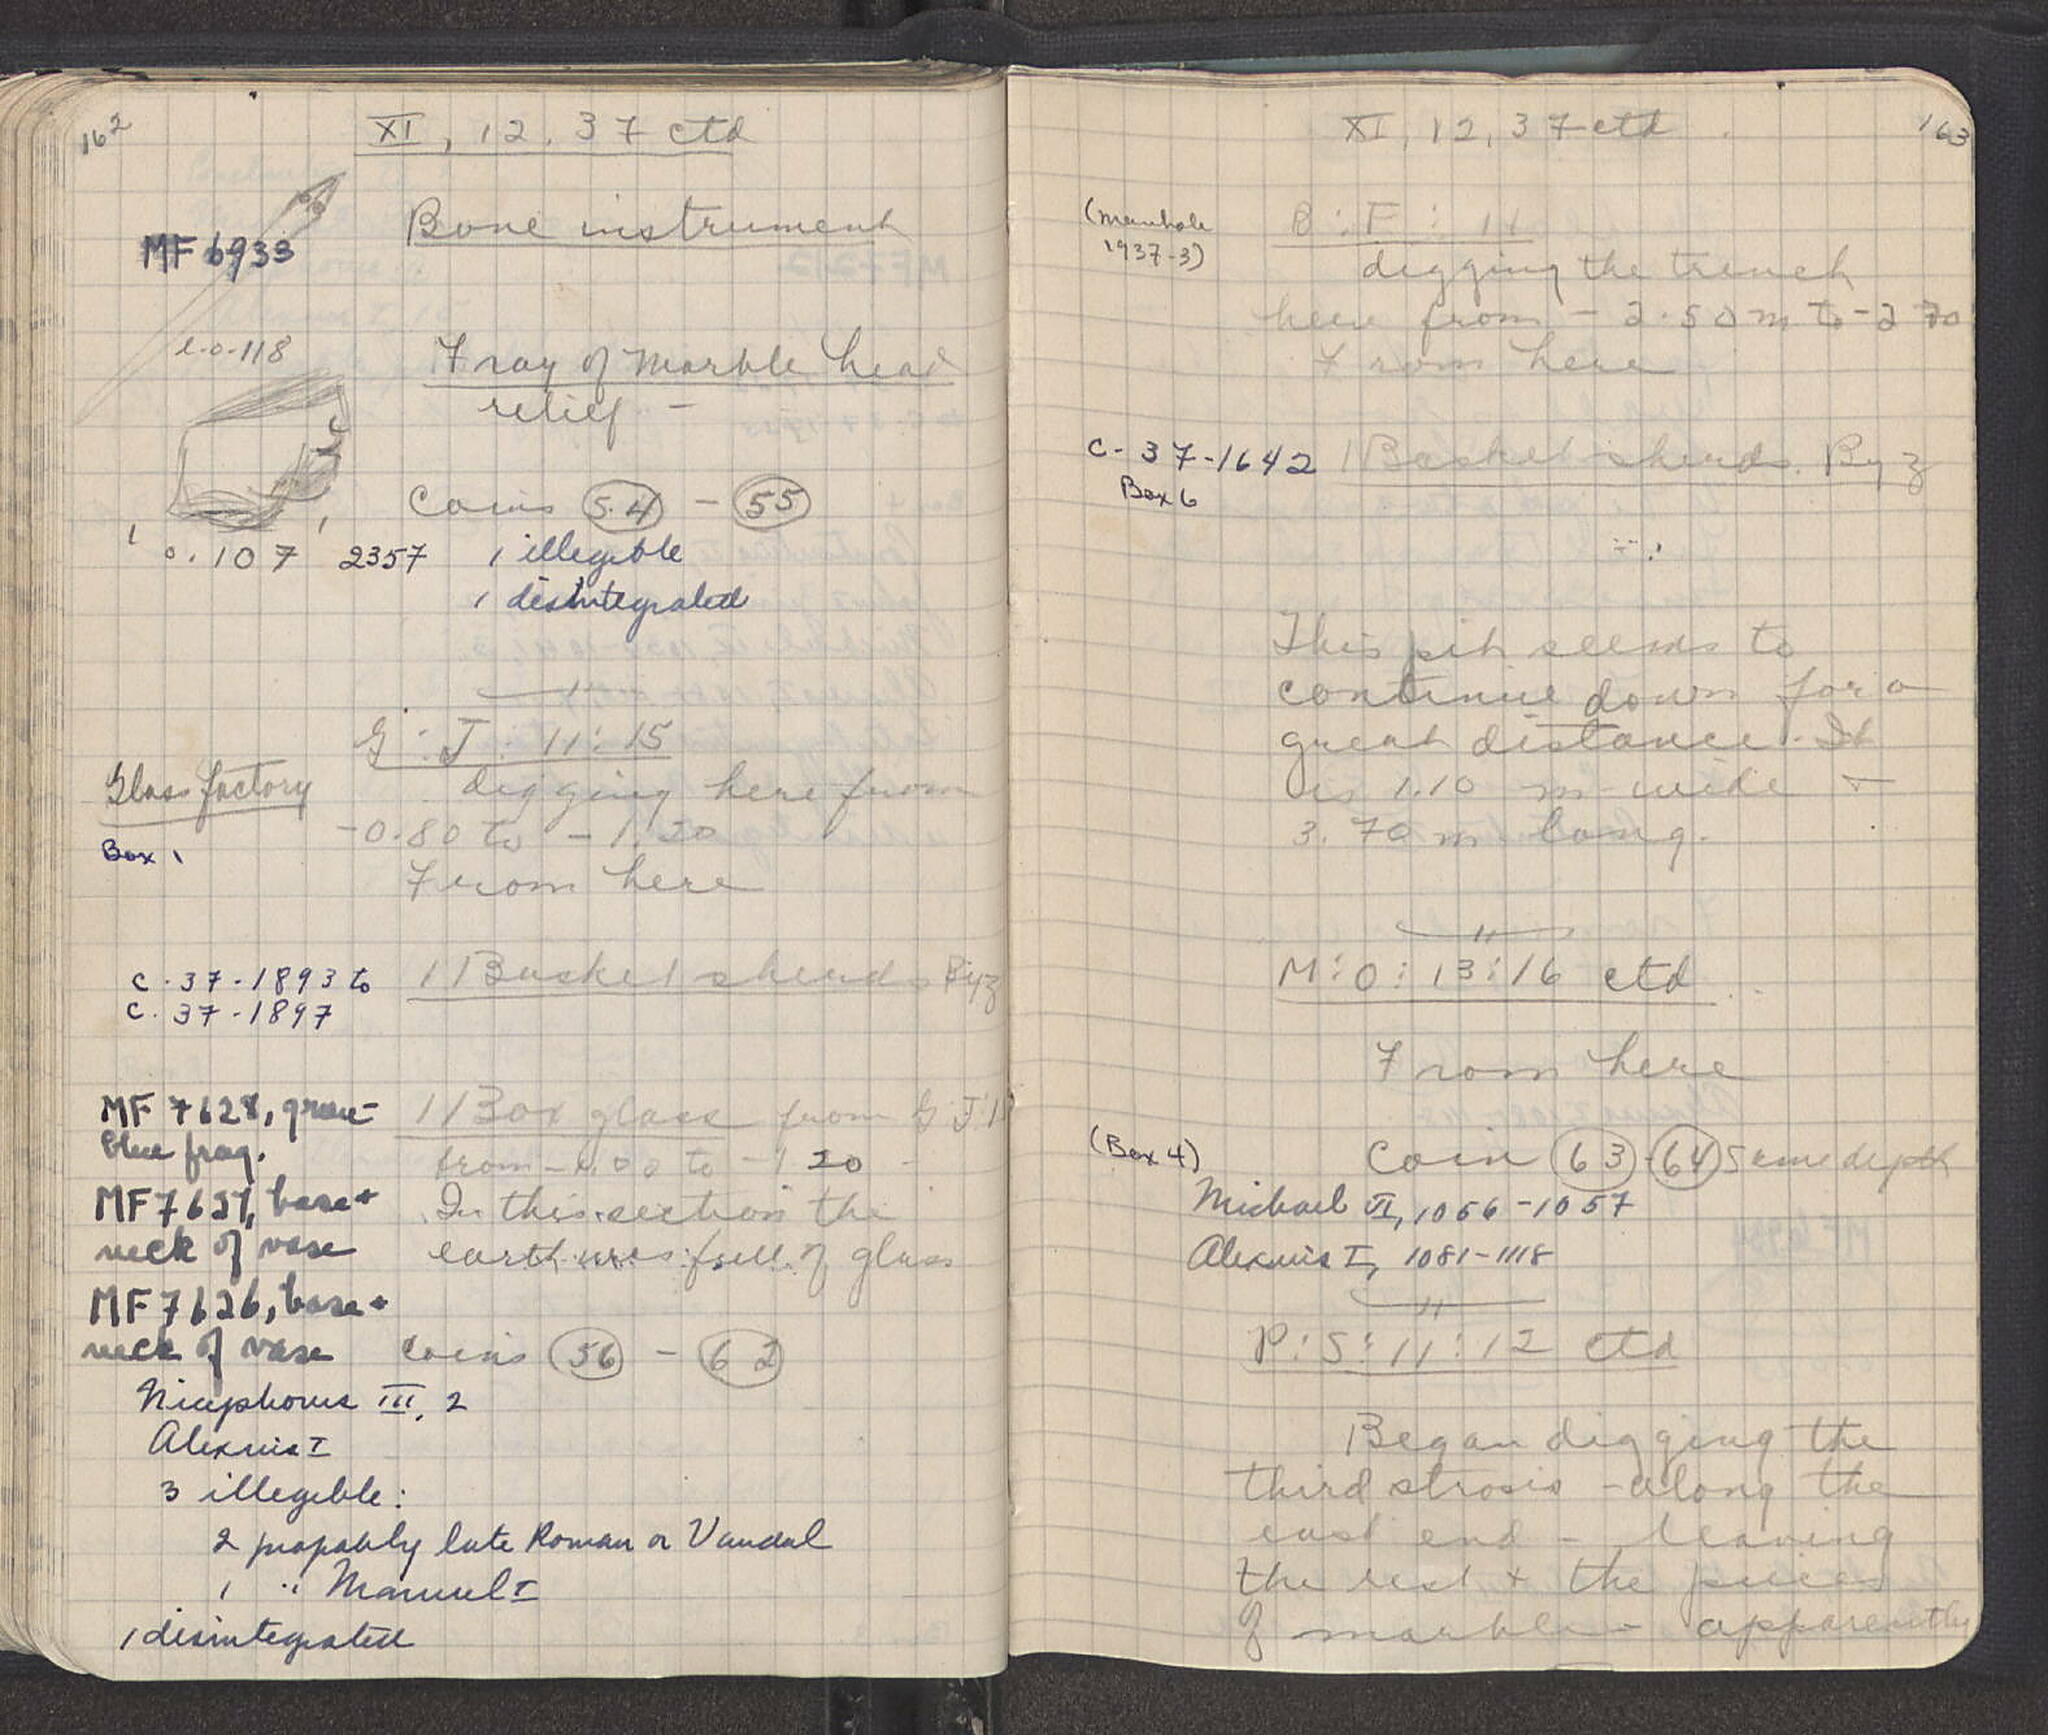 162
XI, 12. 37 ctd
MF 6933
Bone instrument
l. 0.118
Frag of Marble head
relief -
Coins 54 - 55
0.107 2357 1 illegible
1 disintegrated
G : J : 11 : 15
Glass factory
digging here from
-0.80 to -1.20
Box 1
From here
C-37-1893 to
C-37-1897
1 Basket sherds Byz
MF 7628, green-
blue frag.
1 Box glass from G J
from -1.00 to -1 20
MF 7627, base +
neck of vase
In this section the
earth was full of glass
MF 7626, base +
neck of vase
Coins 56 - 62
Nicephorus III, 2
Alexius I
3 illegible:
2 propably late Roman or Vandal
1 " Manuel I
1 disintegrated
163
XI, 12, 37 ctd
(manhole
1937-3)
B : F : 11
digging the trench
here from - 2.50 m to - 2 70
From here
C-37-1642
Box 6
1 Basket sherds. Byz
This pit seems to
continue down for a
great distance. It
is 1.10 m wide +
3.70 m long.
M : O : 13 : 16 ctd
From here
(Box 4)
Coin 63 - 64 Same depth
Michael VI, 1056-1057
Alexius I, 1081-1118
P : S : 11 : 12 ctd
Began digging the
third strosis - along the
east end - leaving
the rest + the pieces
of marble - apparently